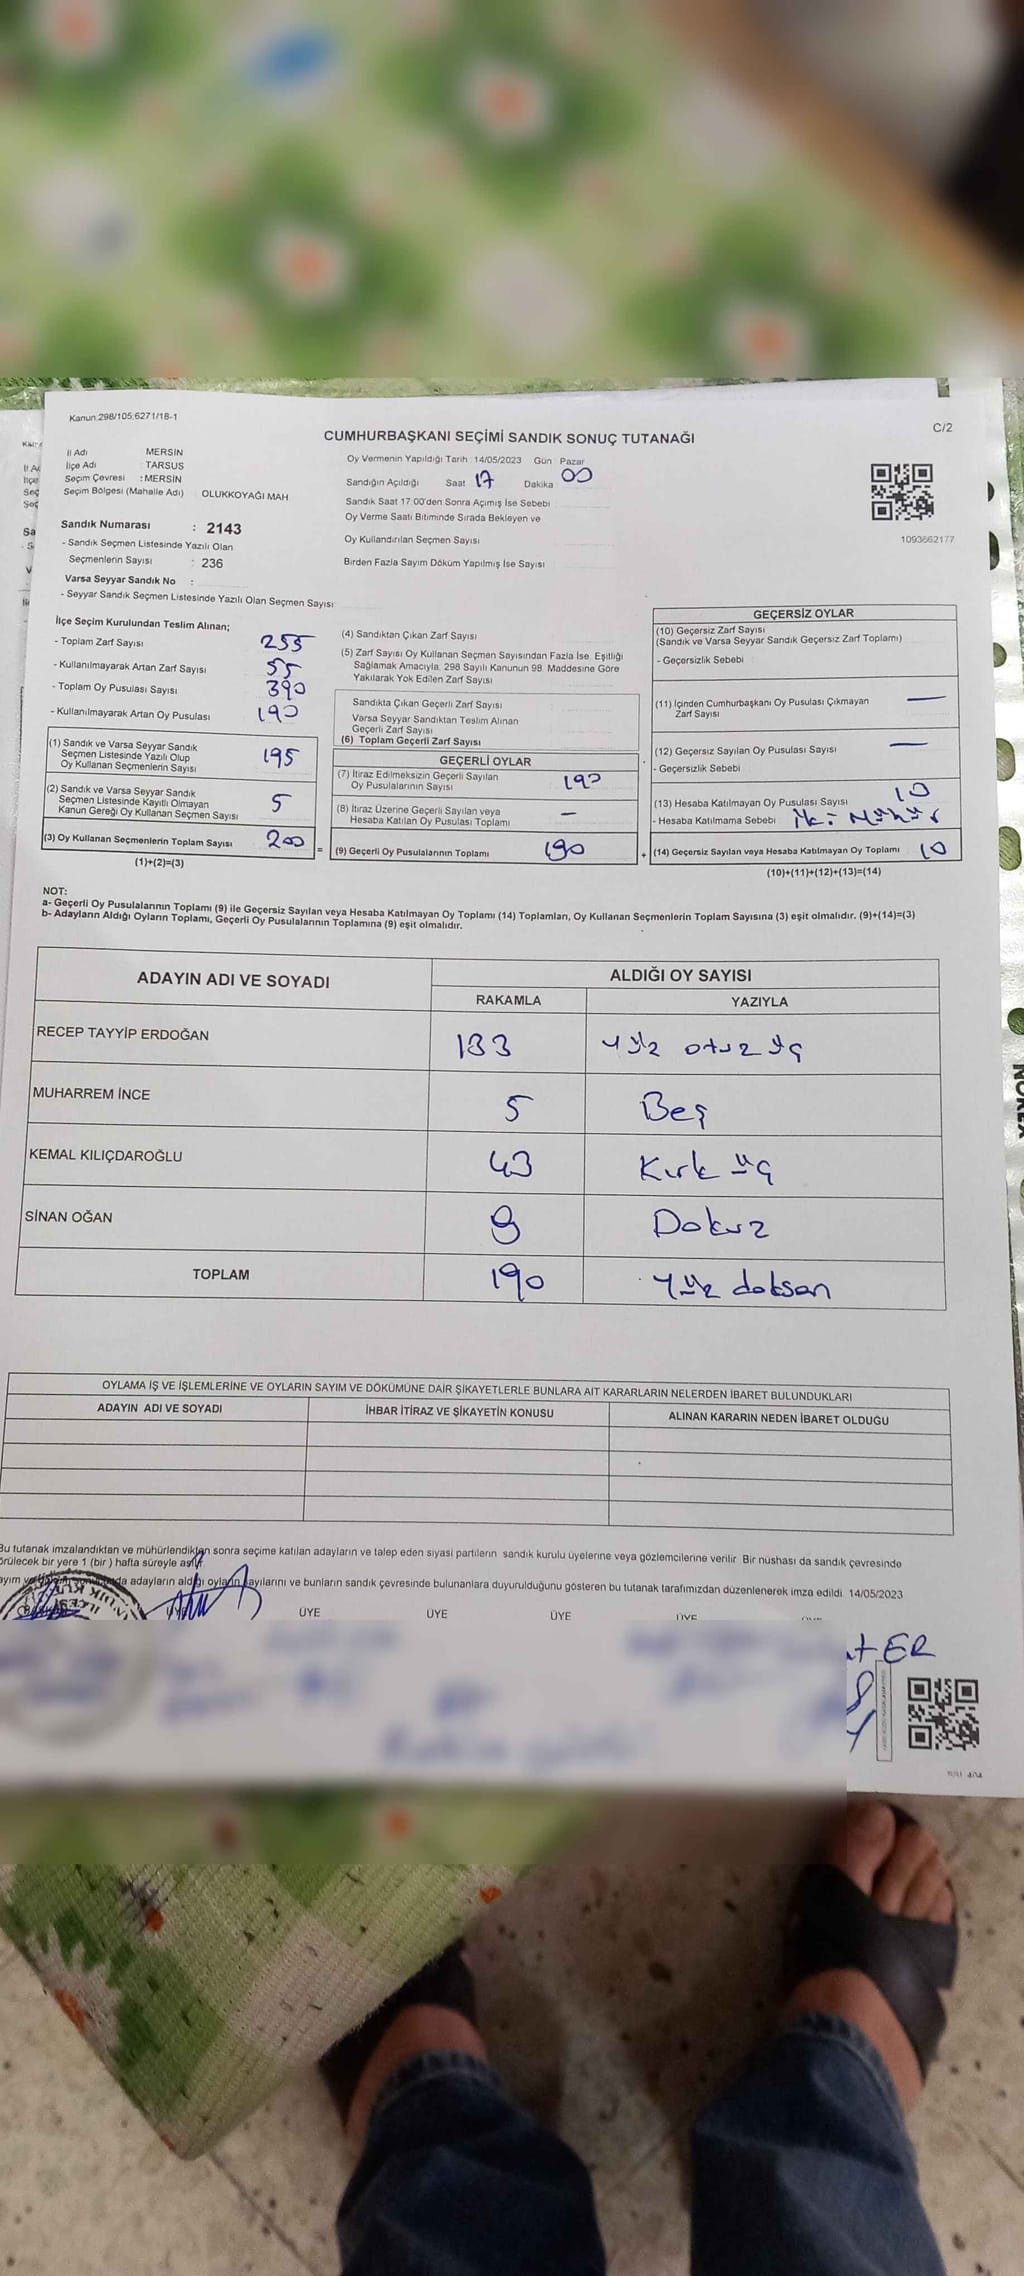 Kanun;298/105;6271/18-1
C/2
CUMHURBAŞKANI SEÇİMİ SANDIK SONUÇ TUTANAĞI
İl Adı : MERSİN
İlçe Adı : TARSUS
Seçim Çevresi : MERSİN
Seçim Bölgesi (Mahalle Adı) : OLUKKOYAĞI MAH
Sandık Numarası : 2143
- Sandık Seçmen Listesinde Yazılı Olan
Seçmenlerin Sayısı : 236
Varsa Seyyar Sandık No :
- Seyyar Sandık Seçmen Listesinde Yazılı Olan Seçmen Sayısı:
Oy Vermenin Yapıldığı Tarih : 14/05/2023 Gün : Pazar
Sandığın Açıldığı Saat 17 Dakika 00
Sandık Saat 17:00'den Sonra Açımış İse Sebebi
Oy Verme Saati Bitiminde Sırada Bekleyen ve
Oy Kullandırılan Seçmen Sayısı
Birden Fazla Sayım Döküm Yapılmış İse Sayısı
1093662177
İlçe Seçim Kurulundan Teslim Alınan;
- Toplam Zarf Sayısı 255
- Kullanılmayarak Artan Zarf Sayısı 55
- Toplam Oy Pusulası Sayısı 390
- Kullanılmayarak Artan Oy Pusulası 190
(1) Sandık ve Varsa Seyyar Sandık
Seçmen Listesinde Yazılı Olup
Oy Kullanan Seçmenlerin Sayısı 195
(2) Sandık ve Varsa Seyyar Sandık
Seçmen Listesinde Kayıtlı Olmayan
Kanun Gereği Oy Kullanan Seçmen Sayısı 5
(3) Oy Kullanan Seçmenlerin Toplam Sayısı 200
(1)+(2)=(3)
(4) Sandıktan Çıkan Zarf Sayısı
(5) Zarf Sayısı Oy Kullanan Seçmen Sayısından Fazla İse, Eşitliği
Sağlamak Amacıyla, 298 Sayılı Kanunun 98. Maddesine Göre
Yakılarak Yok Edilen Zarf Sayısı
Sandıkta Çıkan Geçerli Zarf Sayısı
Varsa Seyyar Sandıktan Teslim Alınan
Geçerli Zarf Sayısı
(6) Toplam Geçerli Zarf Sayısı
GEÇERLİ OYLAR
(7) İtiraz Edilmeksizin Geçerli Sayılan
Oy Pusulalarının Sayısı 190
(8) İtiraz Üzerine Geçerli Sayılan veya
Hesaba Katılan Oy Pusulası Toplamı –
= (9) Geçerli Oy Pusulalarının Toplamı 190
GEÇERSİZ OYLAR
(10) Geçersiz Zarf Sayısı
(Sandık ve Varsa Seyyar Sandık Geçersiz Zarf Toplamı)
- Geçersizlik Sebebi
(11) İçinden Cumhurbaşkanı Oy Pusulası Çıkmayan —
Zarf Sayısı
(12) Geçersiz Sayılan Oy Pusulası Sayısı —
- Geçersizlik Sebebi
(13) Hesaba Katılmayan Oy Pusulası Sayısı 10
- Hesaba Katılmama Sebebi : iki Mühür
+ (14) Geçersiz Sayılan veya Hesaba Katılmayan Oy Toplamı 10
(10)+(11)+(12)+(13)=(14)
NOT:
a- Geçerli Oy Pusulalarının Toplamı (9) ile Geçersiz Sayılan veya Hesaba Katılmayan Oy Toplamı (14) Toplamları, Oy Kullanan Seçmenlerin Toplam Sayısına (3) eşit olmalıdır. (9)+(14)=(3)
b- Adayların Aldığı Oyların Toplamı, Geçerli Oy Pusulalarının Toplamına (9) eşit olmalıdır.
ADAYIN ADI VE SOYADI
ALDIĞI OY SAYISI
RAKAMLA YAZIYLA
RECEP TAYYİP ERDOĞAN 133 yüz otuz üç
MUHARREM İNCE 5 Beş
KEMAL KILIÇDAROĞLU 43 Kırk üç
SİNAN OĞAN 9 Dokuz
TOPLAM 190 yüz doksan
OYLAMA İŞ VE İŞLEMLERİNE VE OYLARIN SAYIM VE DÖKÜMÜNE DAİR ŞİKAYETLERLE BUNLARA AİT KARARLARIN NELERDEN İBARET BULUNDUKLARI
ADAYIN ADI VE SOYADI İHBAR İTİRAZ VE ŞİKAYETİN KONUSU ALINAN KARARIN NEDEN İBARET OLDUĞU
Bu tutanak imzalandıktan ve mühürlendikten sonra seçime katılan adayların ve talep eden siyasi partilerin sandık kurulu üyelerine veya gözlemcilerine verilir. Bir nüshası da sandık çevresinde
görülecek bir yere 1 (bir) hafta süreyle asılır.
adayların aldığı oyların sayılarını ve bunların sandık çevresinde bulunanlara duyurulduğunu gösteren bu tutanak tarafımızdan düzenlenerek imza edildi. 14/05/2023
ÜYE ÜYE ÜYE ÜYE ÜYE
ER